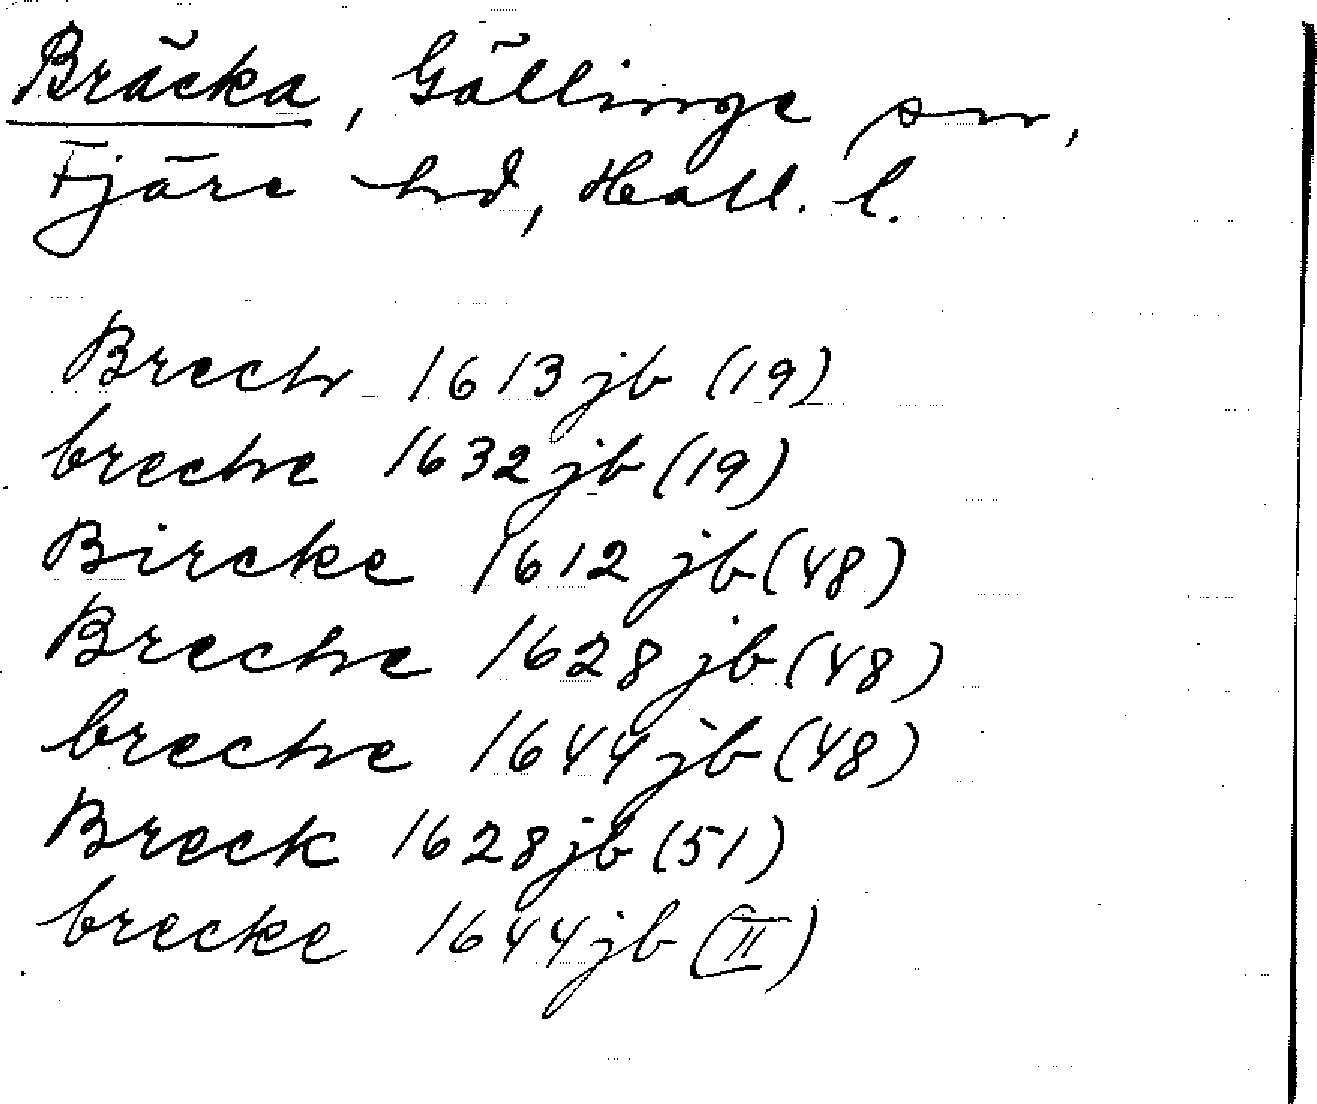 Bräcka, Gällinge sn,
Fjäre hd, Hall. l.
Brech 1613 jb (19)
breche 1632 jb (19)
Bircke 1612 jb (48)
Breche 1628 jb (48)
breche 1644 jb (48)
Breck 1628 jb (51)
brecke 1644 jb (II)